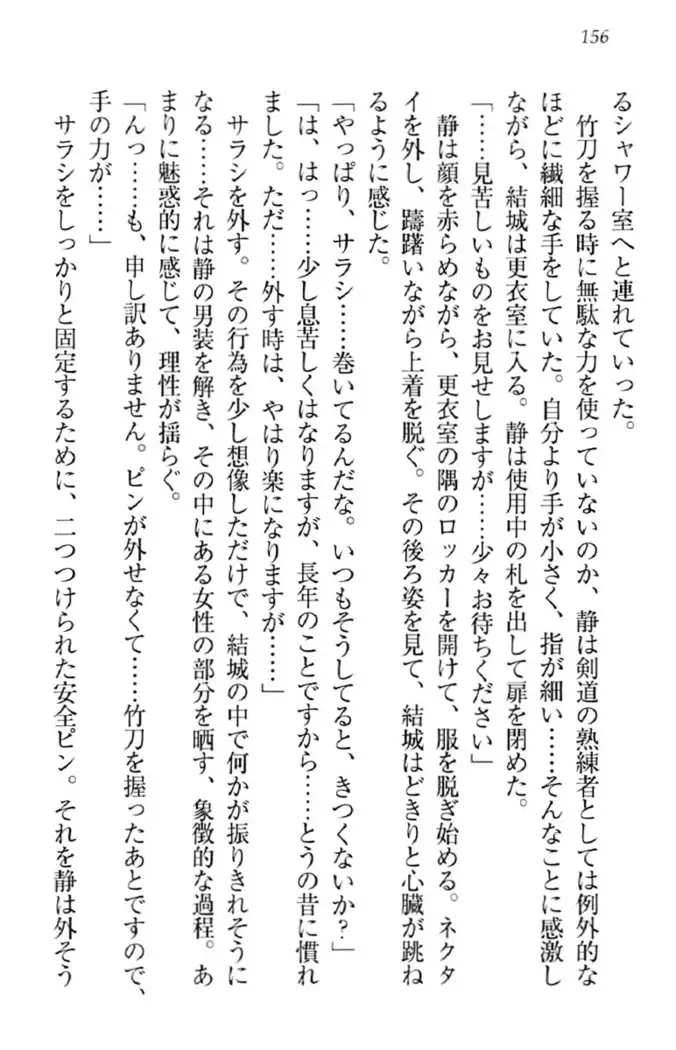 156
るシャワー室へと連れていった。
　竹刀を握る時に無駄な力を使っていないのか、静は剣道の熟練者としては例外的な
ほどに繊細な手をしていた。自分より手が小さく、指が細い……そんなことに感激し
ながら、結城は更衣室に入る。静は使用中の札を出して扉を閉めた。
「……見苦しいものをお見せしますが……少々お待ちください」
　静は顔を赤らめながら、更衣室の隅のロッカーを開けて、服を脱ぎ始める。ネクタ
イを外し、躊躇いながら上着を脱ぐ。その後ろ姿を見て、結城はどきりと心臓が跳ね
るように感じた。
「やっぱり、サラシ……巻いてるんだな。いつもそうしてると、きつくないか？」
「は、はっ……少し息苦しくはなりますが、長年のことですから……とうの昔に慣れ
ました。ただ……外す時は、やはり楽になりますが……」
　サラシを外す。その行為を少し想像しただけで、結城の中で何かが振りきれそうに
なる……それは静の男装を解き、その中にある女性の部分を晒す、象徴的な過程。あ
まりに魅惑的に感じて、理性が揺らぐ。
「んっ……も、申し訳ありません。ピンが外せなくて……竹刀を握ったあとですので、
手の力が……」
　サラシをしっかりと固定するために、二つつけられた安全ピン。それを静は外そう